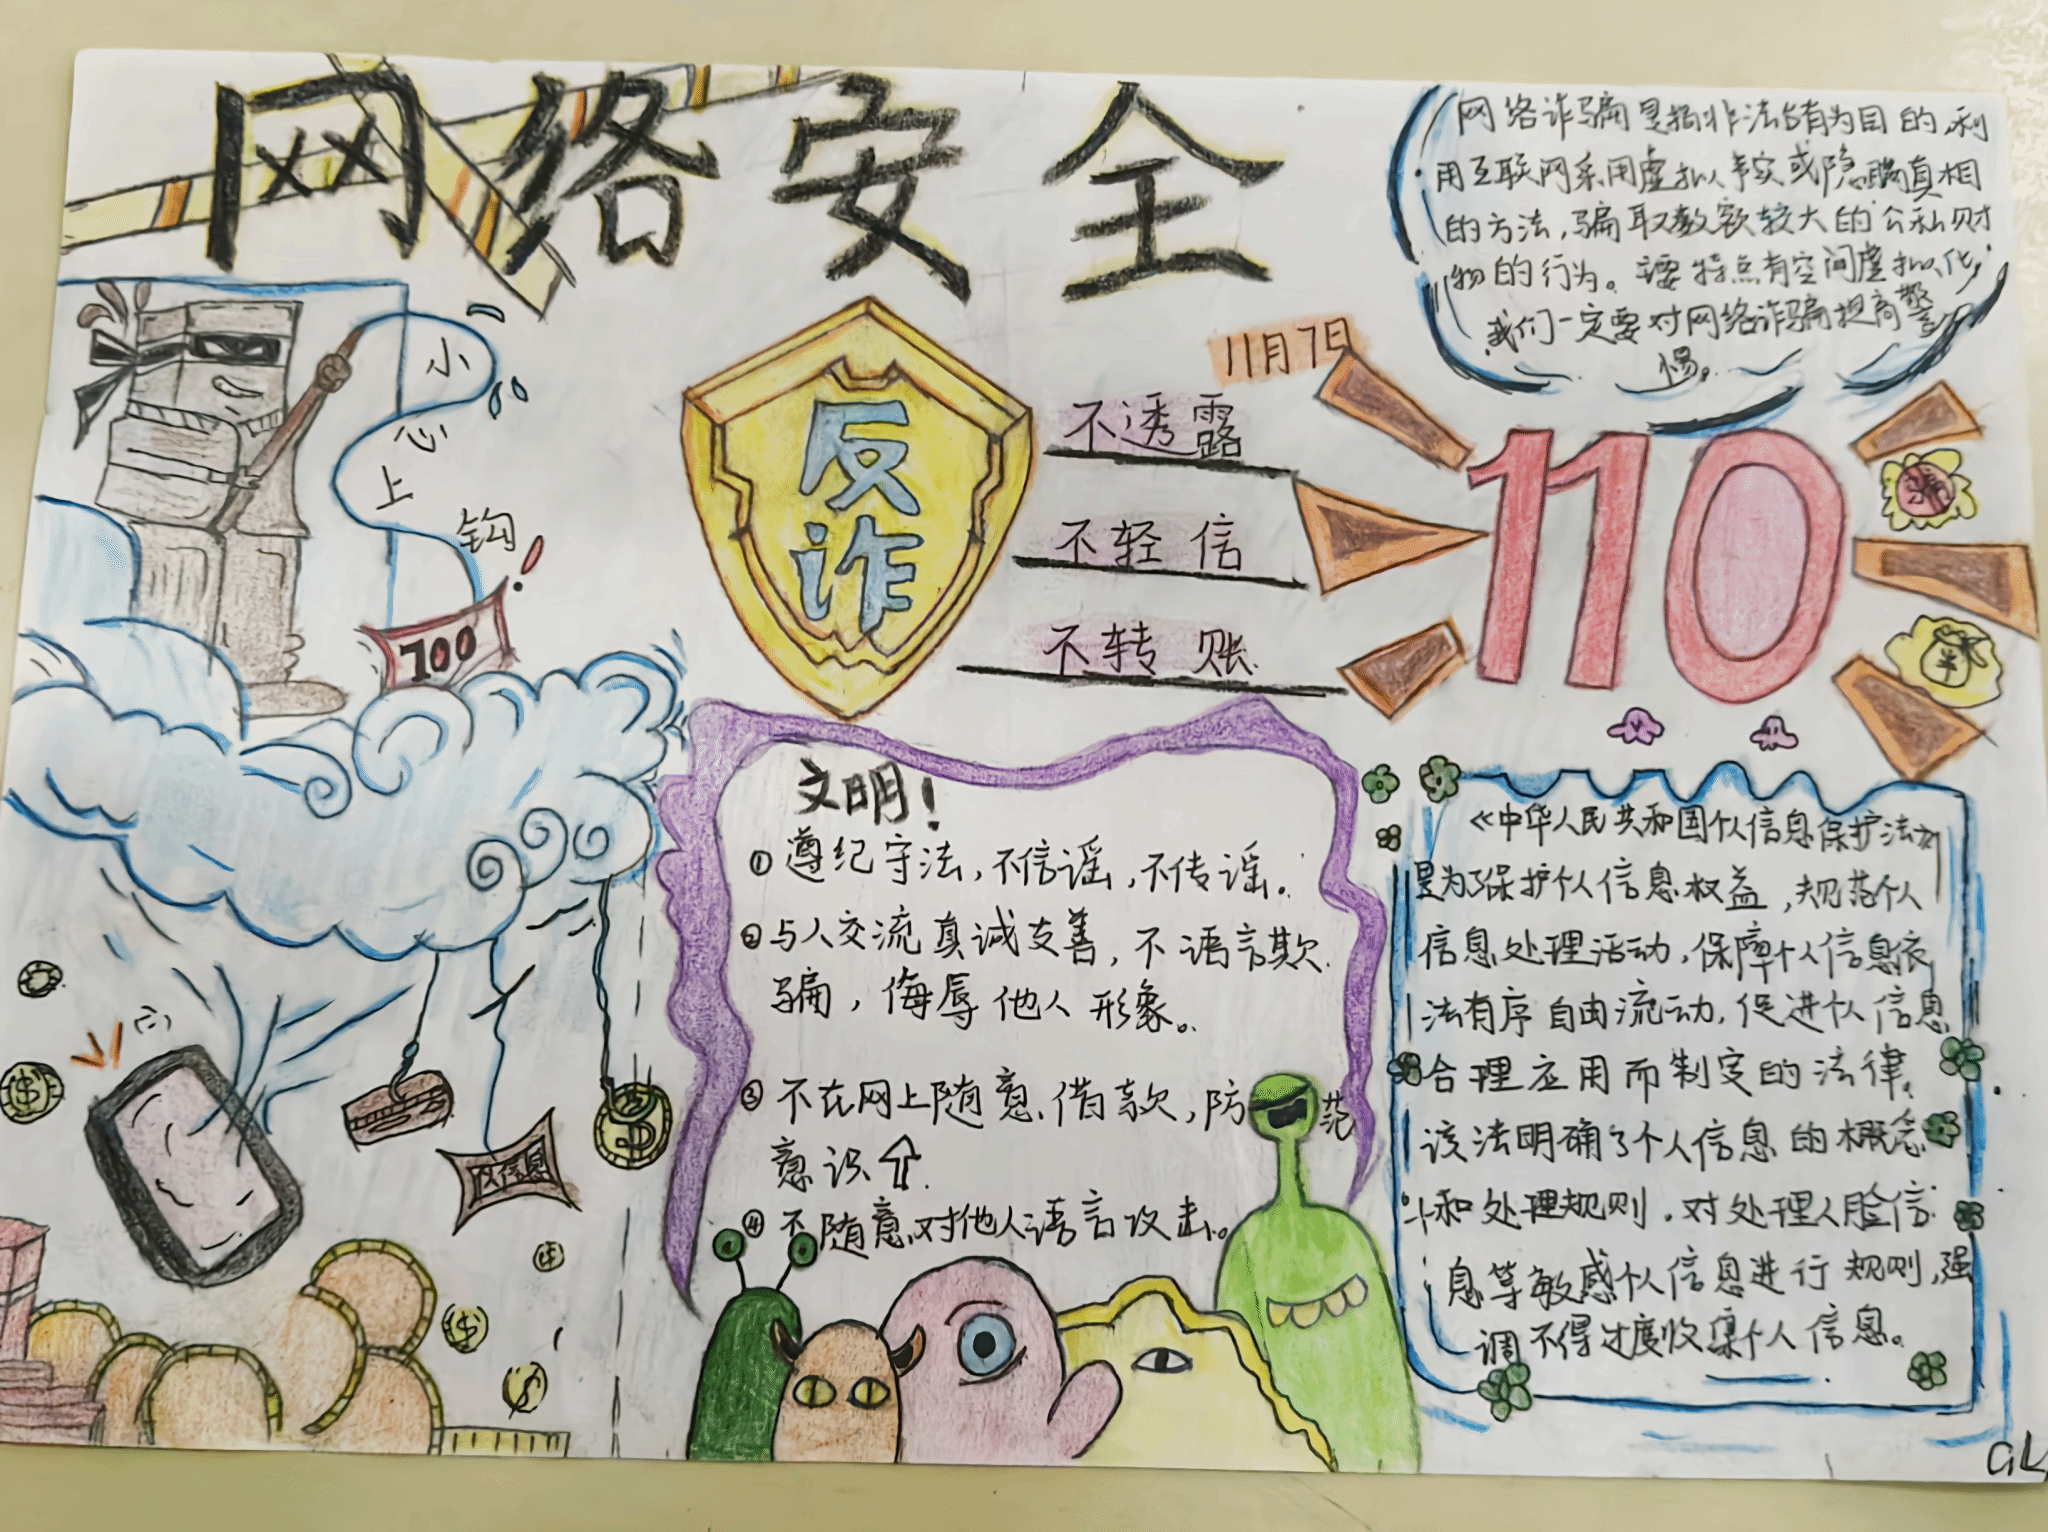 网络安全
网络诈骗是指非法占有为目的,利
用互联网采用虚拟事实或隐瞒真相
的方法,骗取数额较大的公私财
物的行为。主要特点有空间虚拟化,
我们一定要对网络诈骗提高警
惕。
小
心
上
钩!
100
反
诈
11月7日
不透露
不轻信
不转账
110
骗
文明!
①遵纪守法,不信谣,不传谣。
②与人交流真诚友善,不语言欺
骗,侮辱他人形象。
③不在网上随意借款,防范
意识
④不随意对他人语言攻击。
《中华人民共和国个人信息保护法》
是为了保护个人信息权益,规范个人
信息处理活动,保障个人信息依
法有序自由流动,促进个人信息
合理应用而制定的法律。
该法明确了个人信息的概念
和处理规则.对处理人脸信
息等敏感个人信息进行规则,强
调不得过度收集个人信息。
$
$
$
信息